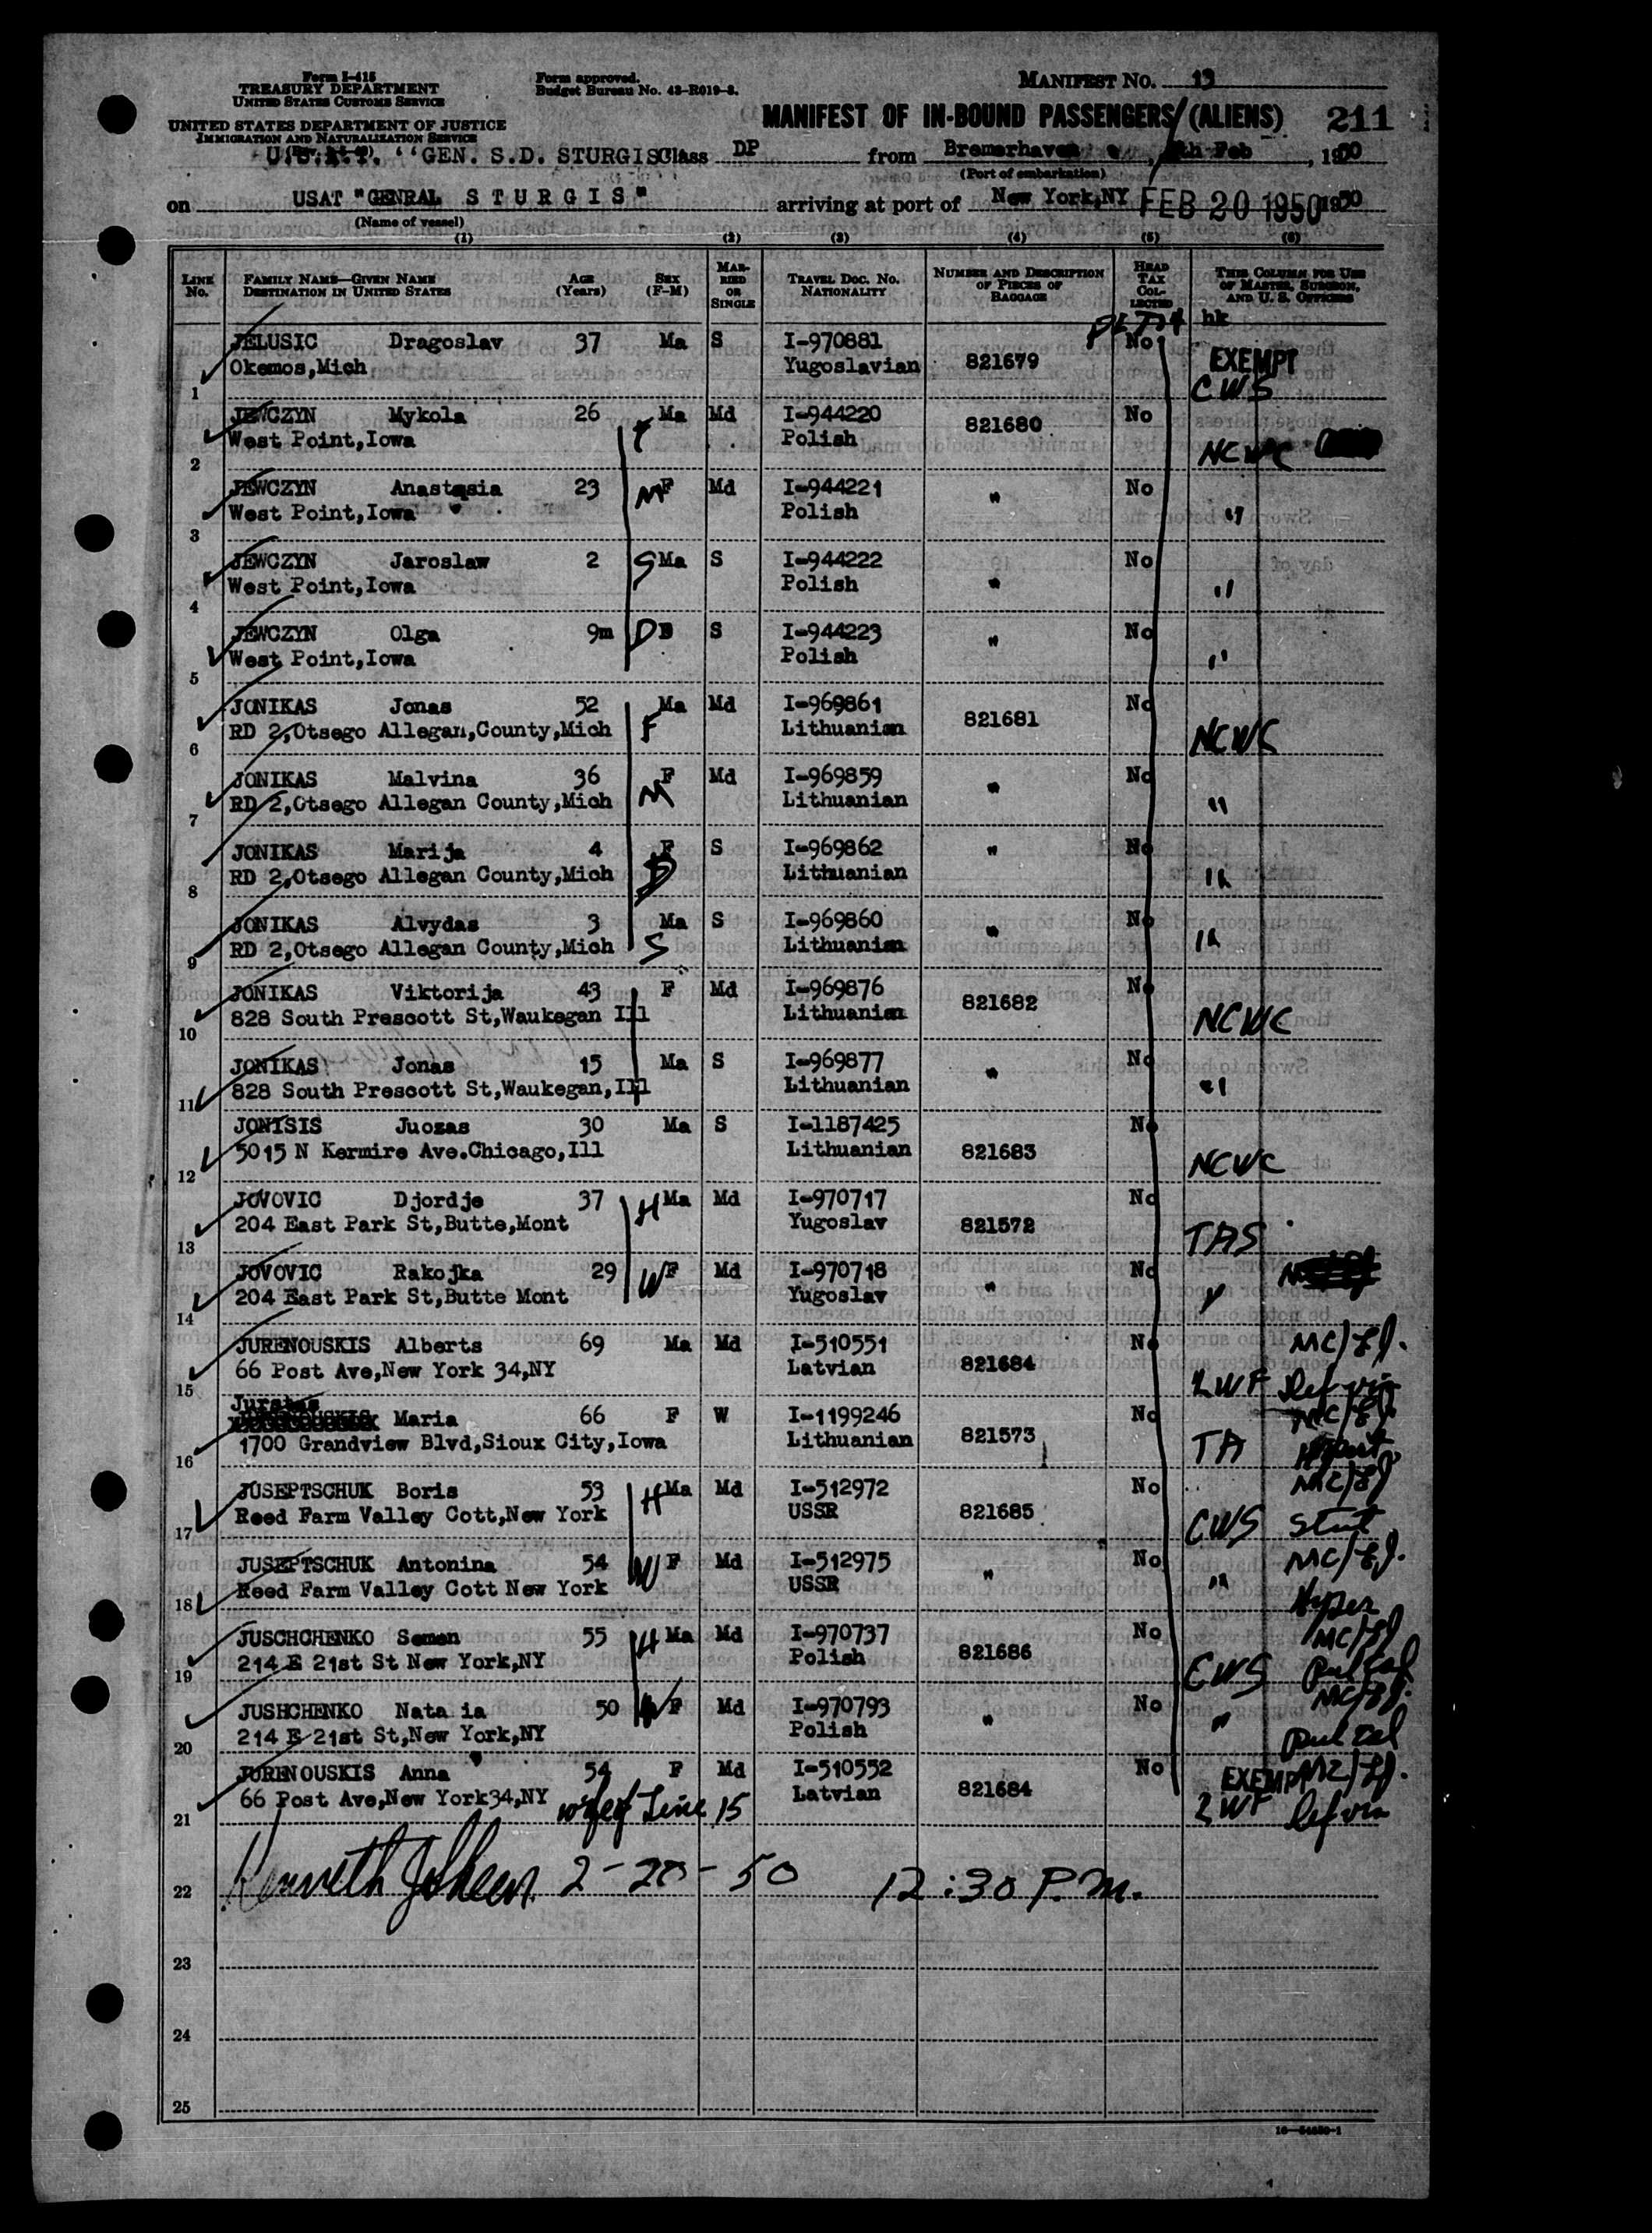 Form I-415
TREASURY DEPARTMENT
UNITED STATES CUSTOMS SERVICE
UNITED STATES DEPARTMENT OF JUSTICE
IMMIGRATION AND NATURALIZATION SERVICE
Form approved.
Budget Bureau No. 43-R019-3.
MANIFEST No. 13
MANIFEST OF IN-BOUND PASSENGERS (ALIENS) 211
"GEN. S.D. STURGIS Class DP from Bremerhaven, Feb, 1950
(Port of embarkation)
on USAT "GENRAL STURGIS" arriving at port of New York,NY FEB 20 1950 1950
(Name of vessel)
(1) (2) (3) (4) (5) (6)
LINE No. FAMILY NAME—GIVEN NAME DESTINATION IN UNITED STATES AGE (Years) SEX (F-M) MARRIED OR SINGLE TRAVEL DOC. NO. NATIONALITY NUMBER AND DESCRIPTION OF PIECES OF BAGGAGE HEAD TAX COLLECTED THIS COLUMN FOR USE OF MASTER, SURGEON, AND U. S. OFFICERS
hk
JELUSIC Dragoslav 37 Ma S I-970881 821679 No EXEMPT
1 Okemos,Mich Yugoslavian CWS
JEWCZYN Mykola 26 Ma Md I-944220 821680 No
2 West Point,Iowa Polish NCWC
JEWCZYN Anastasia 23 M F Md I-944221 " No
3 West Point,Iowa Polish "
JEWCZYN Jaroslaw 2 S Ma S I-944222 " No
4 West Point,Iowa Polish "
JEWCZYN Olga 9m D S I-944223 " No
5 West Point,Iowa Polish "
JONIKAS Jonas 52 Ma Md I-969861 821681 No
6 RD 2,Otsego Allegan,County,Mich F Lithuanian NCWC
JONIKAS Malvina 36 F Md I-969859 " No
7 RD 2,Otsego Allegan County,Mich M Lithuanian "
JONIKAS Marija 4 F S I-969862 " No
8 RD 2,Otsego Allegan County,Mich D Lithuanian "
JONIKAS Alvydas 3 Ma S I-969860 " No
9 RD 2,Otsego Allegan County,Mich S Lithuanian "
JONIKAS Viktorija 43 F Md I-969876 821682 No
10 828 South Prescott St,Waukegan Ill Lithuanian NCWC
JONIKAS Jonas 15 Ma S I-969877 " No
11 828 South Prescott St,Waukegan,Ill Lithuanian "
JONISIS Juozas 30 Ma S I-1187425 No
12 5015 N Kermire Ave.Chicago,Ill Lithuanian 821683 NCWC
JOVOVIC Djordje 37 H Ma Md I-970717 821572 No
13 204 East Park St,Butte,Mont Yugoslav TAS
JOVOVIC Rakojka 29 W F Md I-970718 " No
14 204 East Park St,Butte Mont Yugoslav "
JURENOUSKIS Alberts 69 Ma Md I-510551 821684 No
15 66 Post Ave,New York 34,NY Latvian LWF
Jurstas
Maria 66 F W I-1199246 821573 No
16 1700 Grandview Blvd,Sioux City,Iowa Lithuanian TA
JUSEPTSCHUK Boris 53 H Ma Md I-512972 821685 No
17 Reed Farm Valley Cott,New York USSR CWS
JUSEPTSCHUK Antonina 54 W F Md I-512975 " No
18 Reed Farm Valley Cott New York USSR " Hyper
JUSCHCHENKO Semen 55 H Ma Md I-970737 821686 No
19 214 E 21st St New York,NY Polish CWS
JUSHCHENKO Nata ia 50 W F Md I-970793 " No
20 214 E 21st St,New York,NY Polish "
JURENOUSKIS Anna 54 F Md I-510552 821684 No EXEMPT
21 66 Post Ave,New York34,NY wife of Line 15 Latvian LWF
22 Kenneth 2-20-50 12:30 P.M.
23
24
25